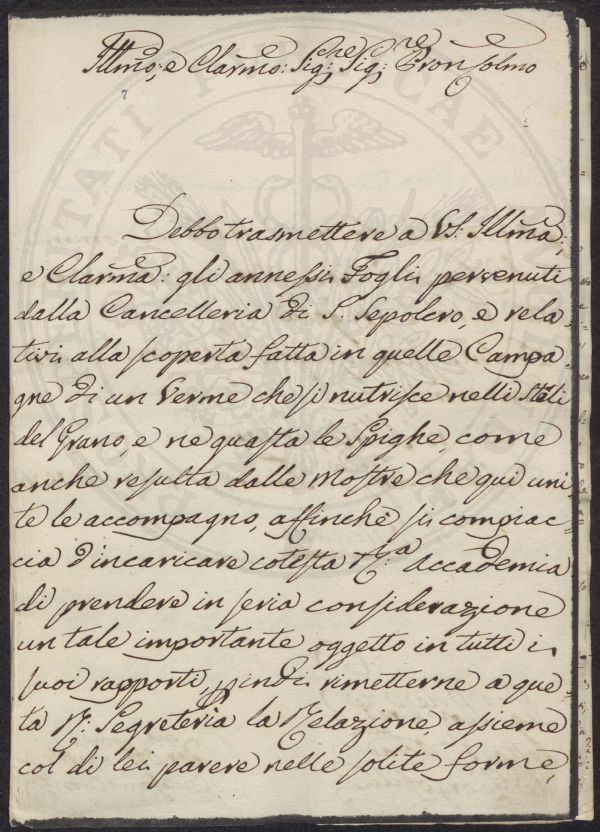 Illmo; e Clarmo: Sigre: Sigre: Pron Colmo
7
Debbo trasmettere a VS. Illma;,
e Clarma: gli annessi Fogli pervenuti
dalla Cancelleria di S. Sepolcro, e rela=
tivi alla scoperta fatta in quelle Campa=
gne di un Verme che si nutrisce nelli Steli
del Grano, e ne guasta le Spighe, come
anche resulta dalle Mostre che qui uni=
te le accompagno, affinchè si compiac=
cia d'incaricare cotesta R:a Accademia
di prendere in seria considerazione
un tale importante oggetto in tutti i
suoi rapporti, quindi rimetterne a que=
ta R: Segreteria la Relazione, assieme
col di lei parere nelle solite forme,